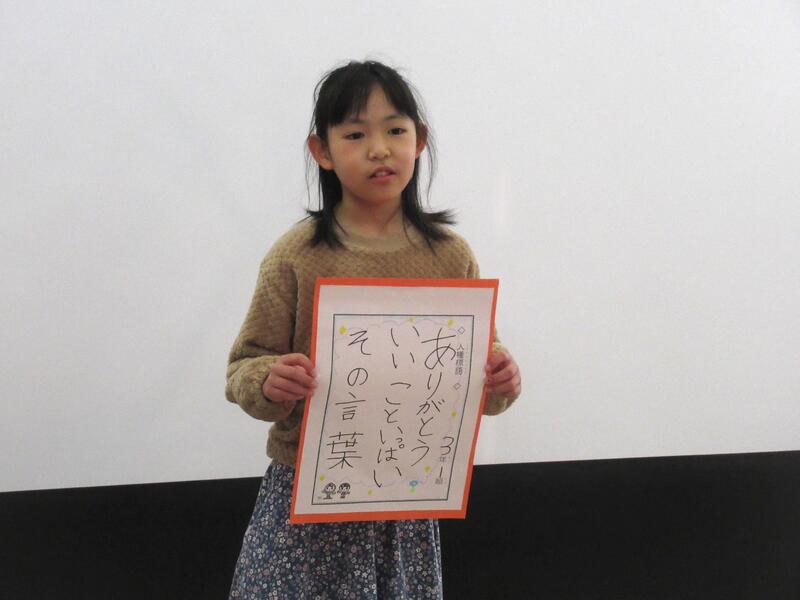 ◇人権標語◇
3年1組
ありがとう
いいこといっぱい
その言葉